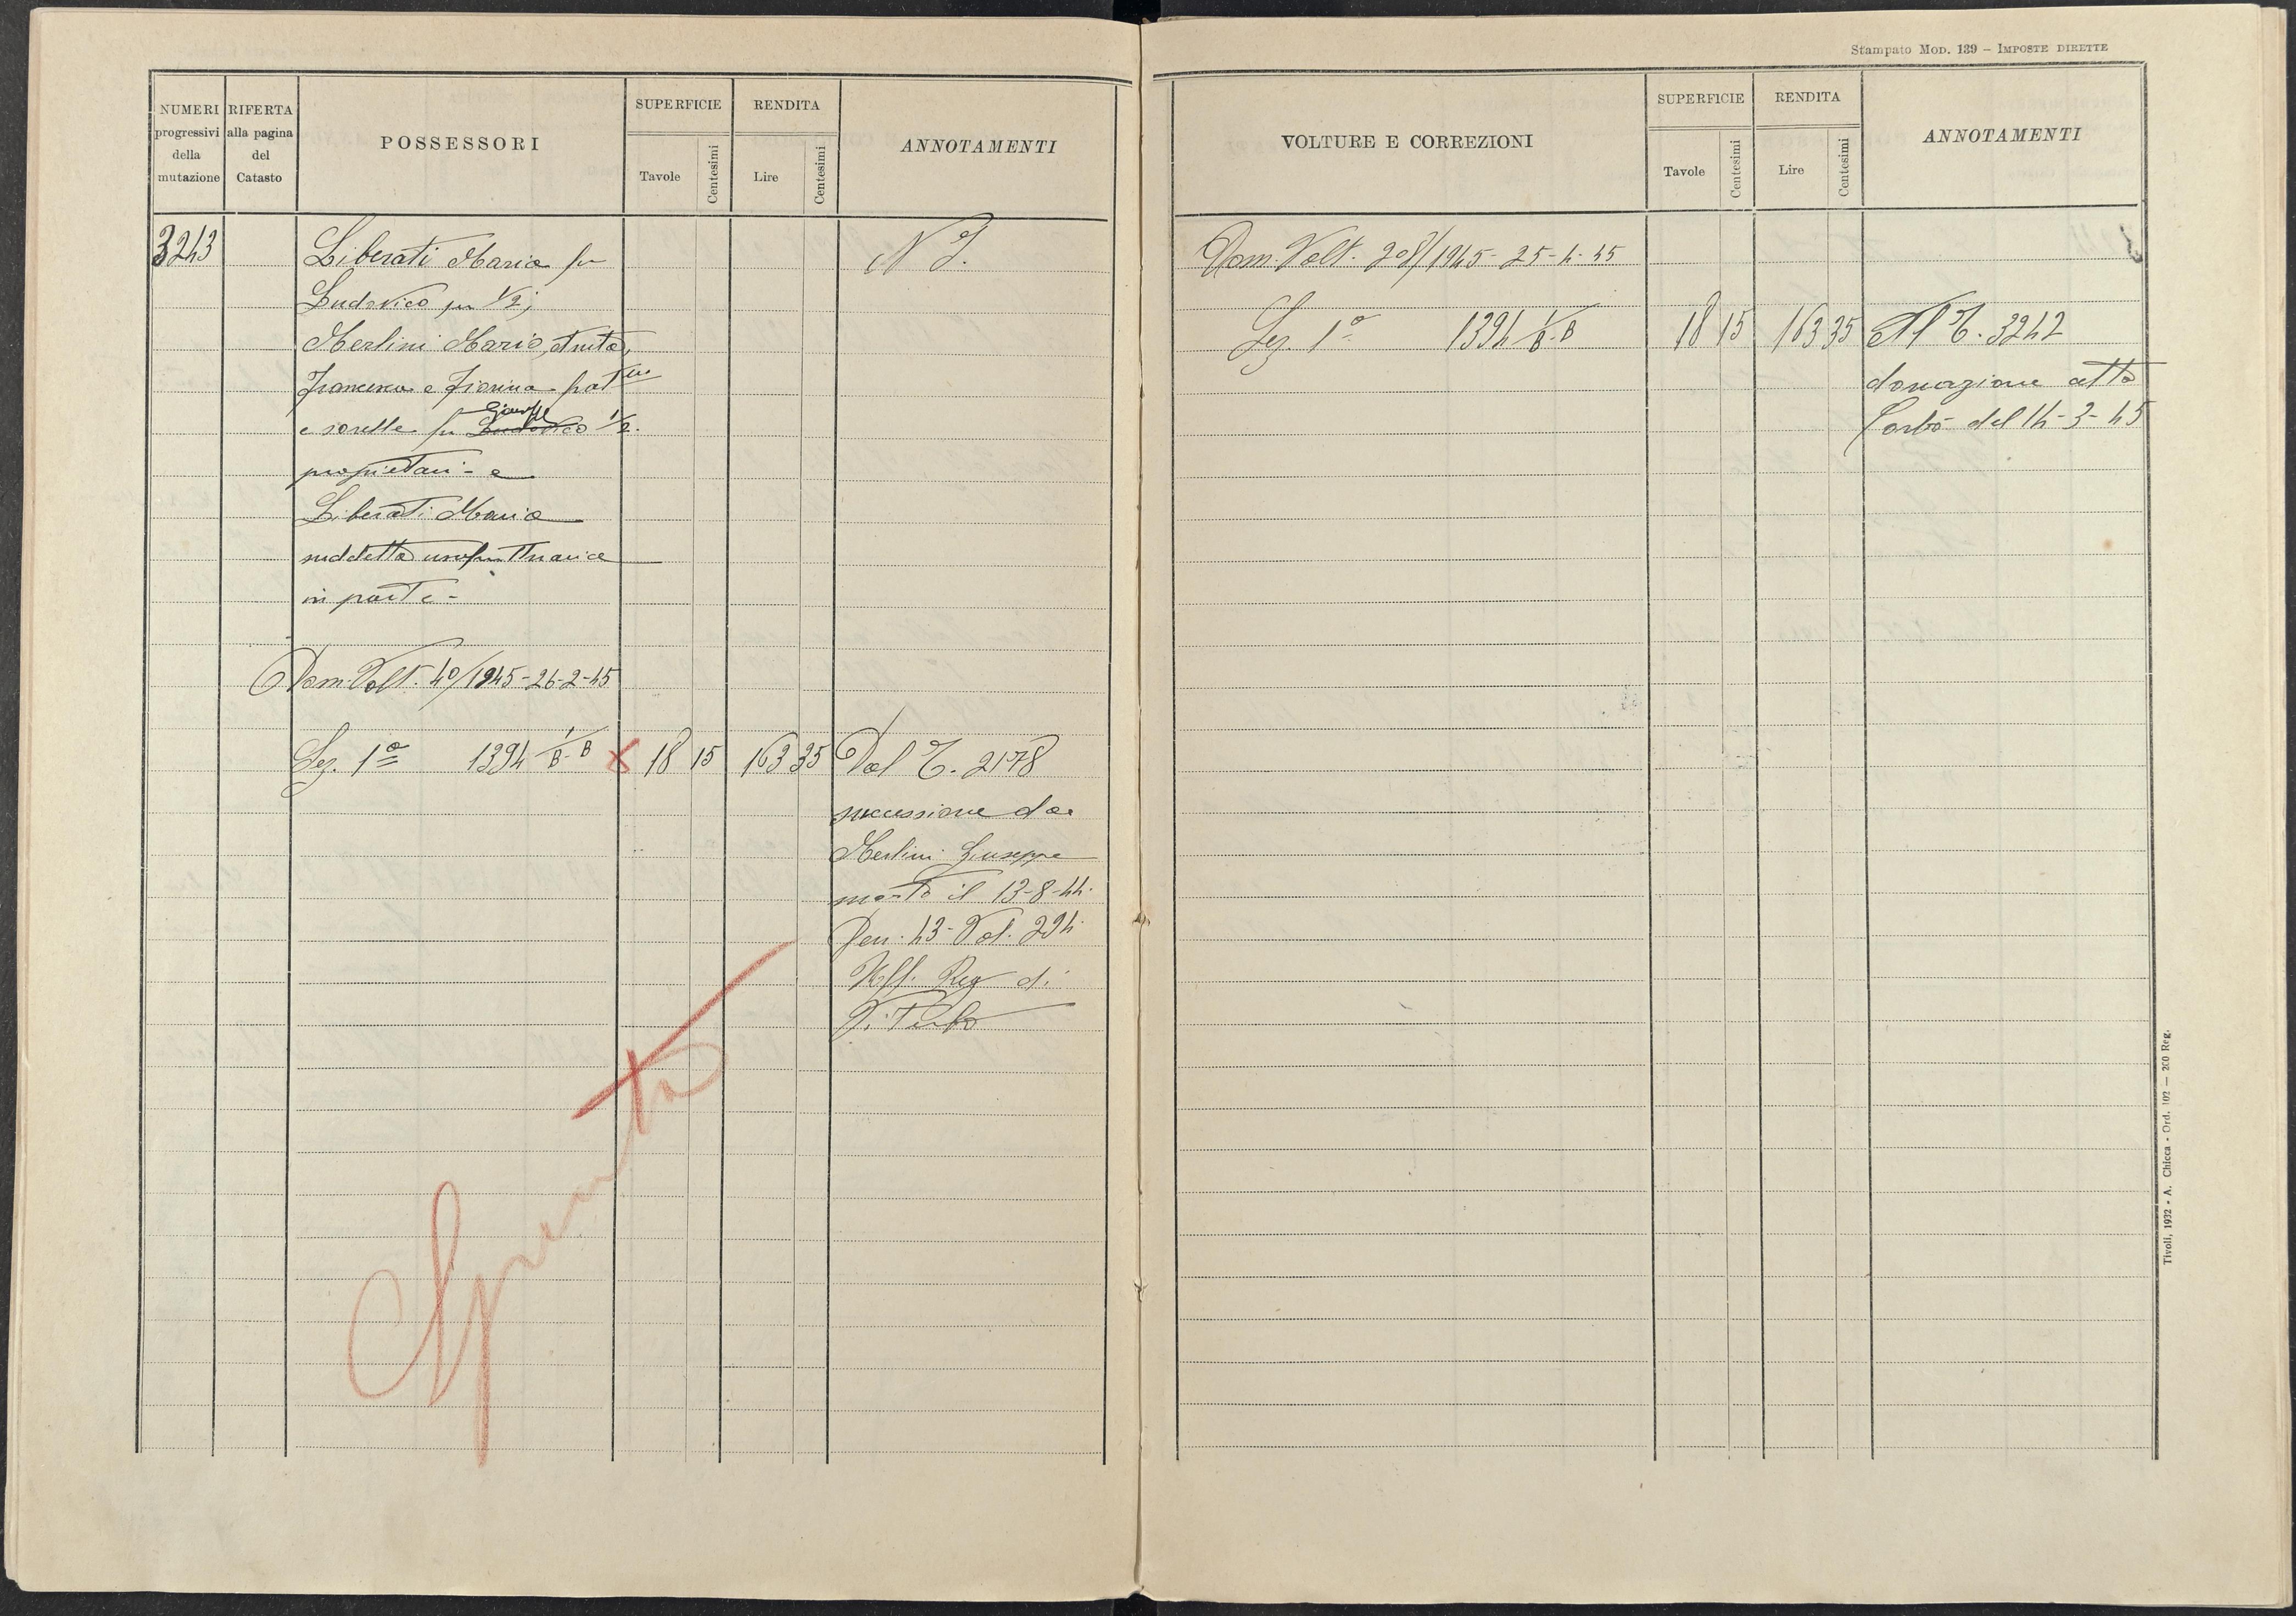 NUMERI progressivi della mutazione
RIFERTA alla pagina del Catasto
POSSESSORI
SUPERFICIE
Tavole
Centesimi
RENDITA
Lire
Centesimi
ANNOTAMENTI
3243
Liberati Maria fu
N I.
Ludovico per 1/2;
Merlini Mario, Anita,
Francesca e Fiorina fratelli
e sorelle fu Ludovico Giuseppe 1/2.
proprietari - e
Liberati Maria
suddetta usufruttuaria
in parte -
Dom. Volt. 40/1945 - 26-2-45
Sez. 1ª 1394 1/B-B x 18 15 163 35 Dal T. 2178
successione da
Merlini Giuseppe
morto il 13-8-44.
Den. 43 - Vol. 294.
Uff. Reg di
Viterbo
Spento
Stampato Mod. 139 - IMPOSTE DIRETTE
VOLTURE E CORREZIONI
SUPERFICIE
Tavole
Centesimi
RENDITA
Lire
Centesimi
ANNOTAMENTI
Dom. Volt. 208/1945 - 25-4-45
Sez. 1ª 1394 1/B-B 18 15 163 35 Al T. 3242
donazione atto
del 14-3-45
Tivoli, 1932 - A. Chicca - Ord. 102 — 200 Reg.